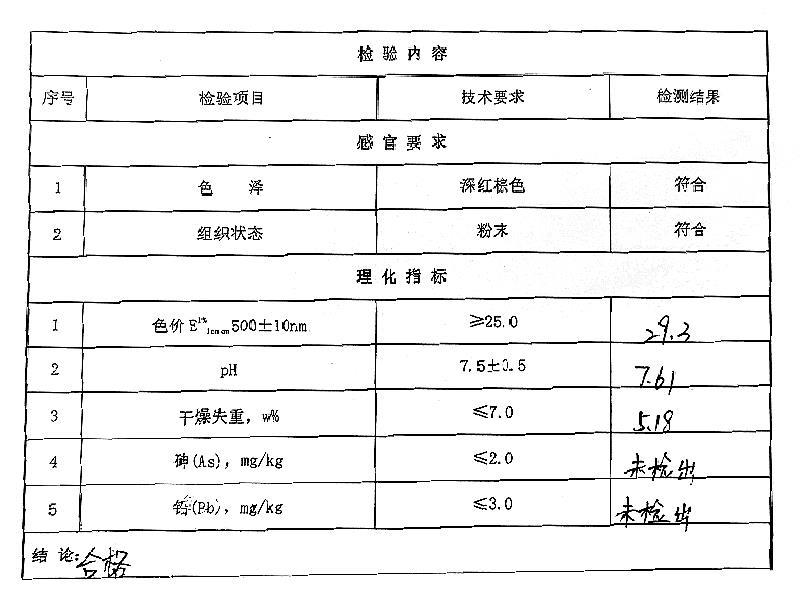 检验内容
序号 检验项目 技术要求 检测结果
感官要求
1 色 泽 深红棕色 符合
2 组织状态 粉末 符合
理化指标
1 色价E¹%₁cmcm500±10nm ≥25.0 29.3
2 pH 7.5±0.5 7.61
3 干燥失重，w% ≤7.0 5.18
4 砷(As)，mg/kg ≤2.0 未检出
5 铅(Pb)，mg/kg ≤3.0 未检出
结 论:合格